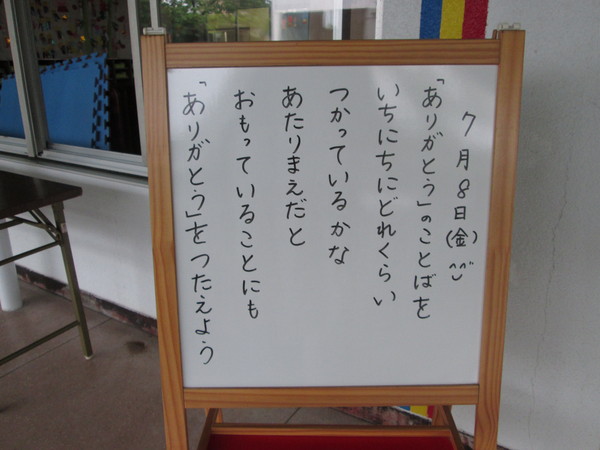 7月8日(金)
「ありがとう」のことばを
いちにちにどれくらい
つかっているかな
あたりまえだと
おもっていることにも
「ありがとう」をつたえよう